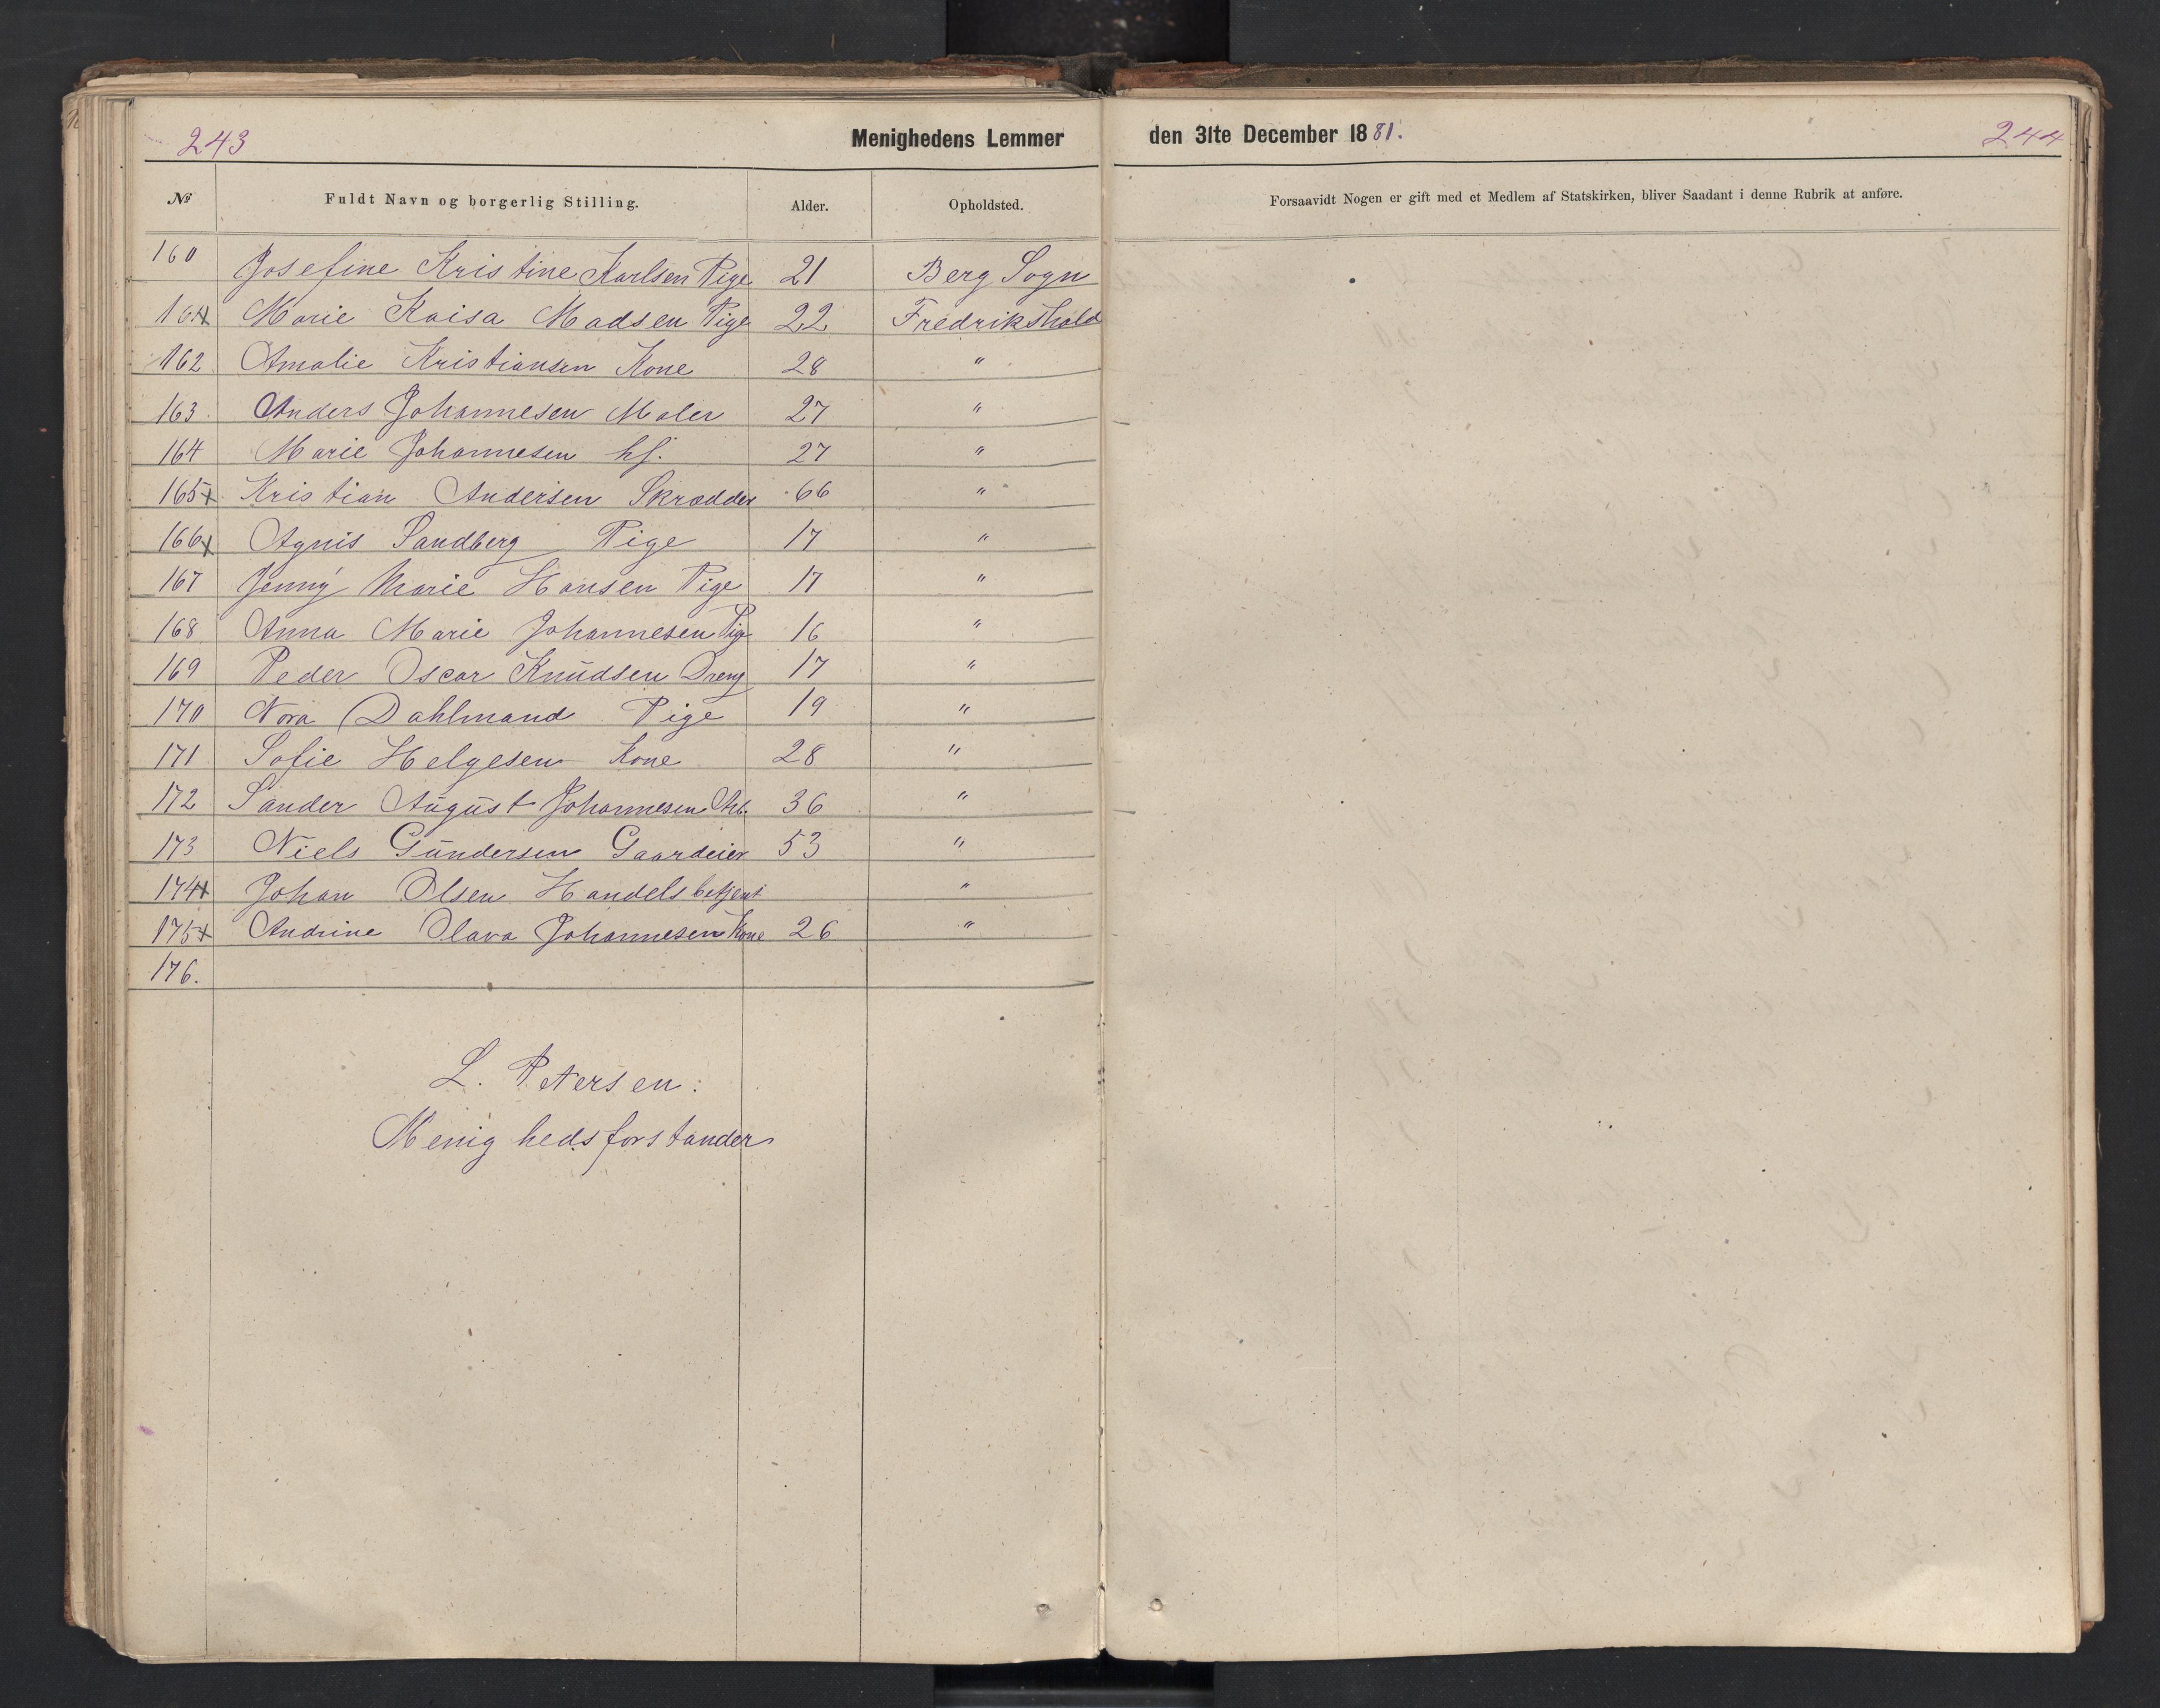 243
Menighedens Lemmer
№ Fuldt Navn og borgerlig Stilling. Alder. Opholdsted.
160 Josefine Kristine Karlsen Pige 21 Berg Sogn
161x Marie Kaisa Madsen Pige 22 Fredrikshald
162 Amalie Kristiansen Kone 28 "
163 Anders Johannesen Maler 27 "
164 Marie Johannesen hf. 27 "
165x Kristian Andersen Skrædder 66 "
166x Agnis Sandberg Pige 17 "
167 Jenny Marie Hansen Pige 17 "
168 Anna Marie Johannesen Pige 16 "
169 Peder Oscar Knudsen Dreng 17 "
170 Nora Dahlmand Pige 19 "
171 Sofie Helgesen Kone 28 "
172 Sander August Johannesen 36 "
173 Niels Gundersen Gaardeier 53 "
174x Johan Olsen Handelsbetjent "
175x Andrine Olava Johannesen Kone 26 "
176.
L. Petersen.
Menighedsforstander
den 31te December 1881.
244
Forsaavidt Nogen er gift med et Medlem af Statskirken, bliver Saadant i denne Rubrik at anføre.